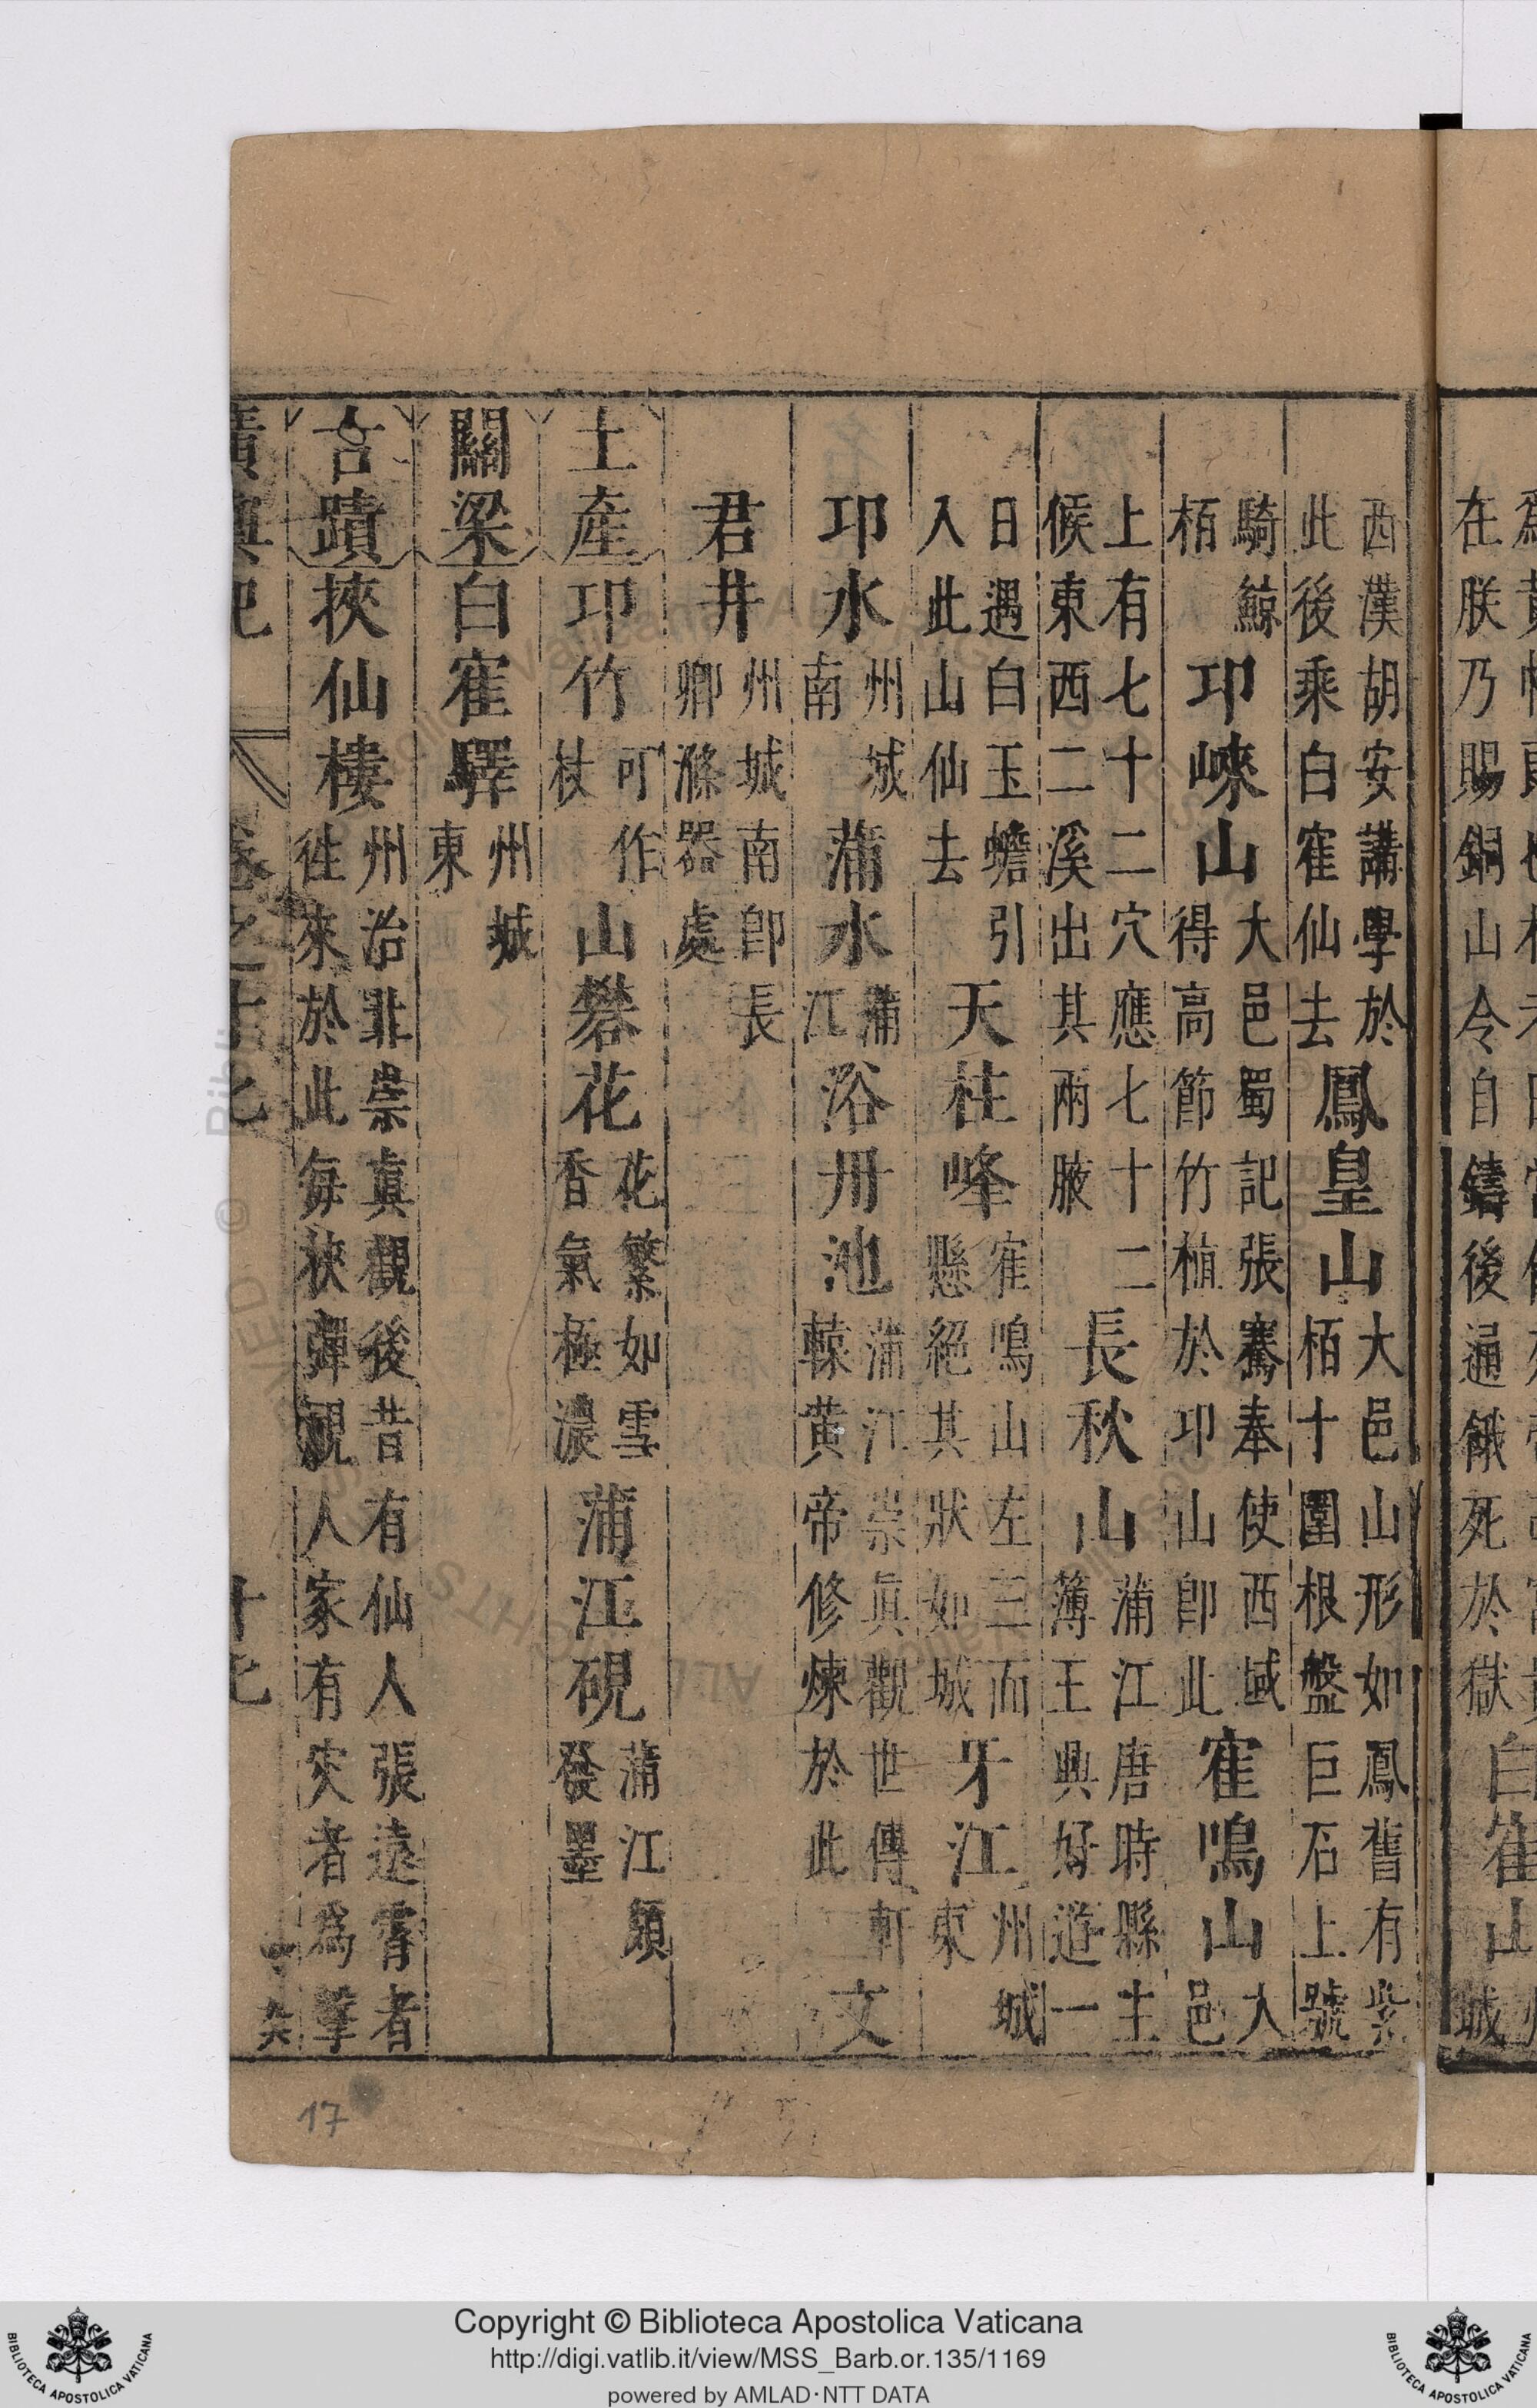 在朕乃賜銅山令自鑄後通餓死於獄白隺山城
西漢胡安講學於此後乘白隺仙去鳳皇山大邑山形如鳳舊有紫栢十圍根盤巨石上號
騎鯨栢邛崍山大邑蜀記張騫奉使西域得高節竹植於邛山卽此隺鳴山大邑
上有七十二穴應七十二候東西二溪出其兩腋長秋山蒲江唐時縣主簿王興好遊一
日遇白玉蟾引入此山仙去天柱峰隺鳴山左三面懸絕其狀如城牙江州城東
邛水州城南蒲水蒲江浴丹池蒲江崇眞觀世傳軒轅黄帝修煉於此文
君井州城南卽長卿滌器處
土產邛竹可作杖山礬花花繁如雪香氣極濃蒲江硯蒲江頴發墨
關梁白隺驛州城東
古蹟挾仙樓州治北崇眞觀後昔有仙人張遠霄者徃來於此每挾彈視人家有灾者爲擊
廣輿記 卷之十七 十七
17
Copyright © Biblioteca Apostolica Vaticana
http://digi.vatlib.it/view/MSS_Barb.or.135/1169
powered by AMLAD·NTT DATA
BIBLIOTECA APOSTOLICA VATICANA
BIBLIOTECA APOSTOLICA VATICANA